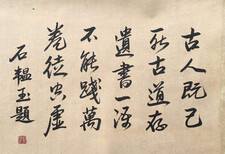 古人既已
死古道存
遺書一語
不能踐萬
卷徒空虛
石韞玉題